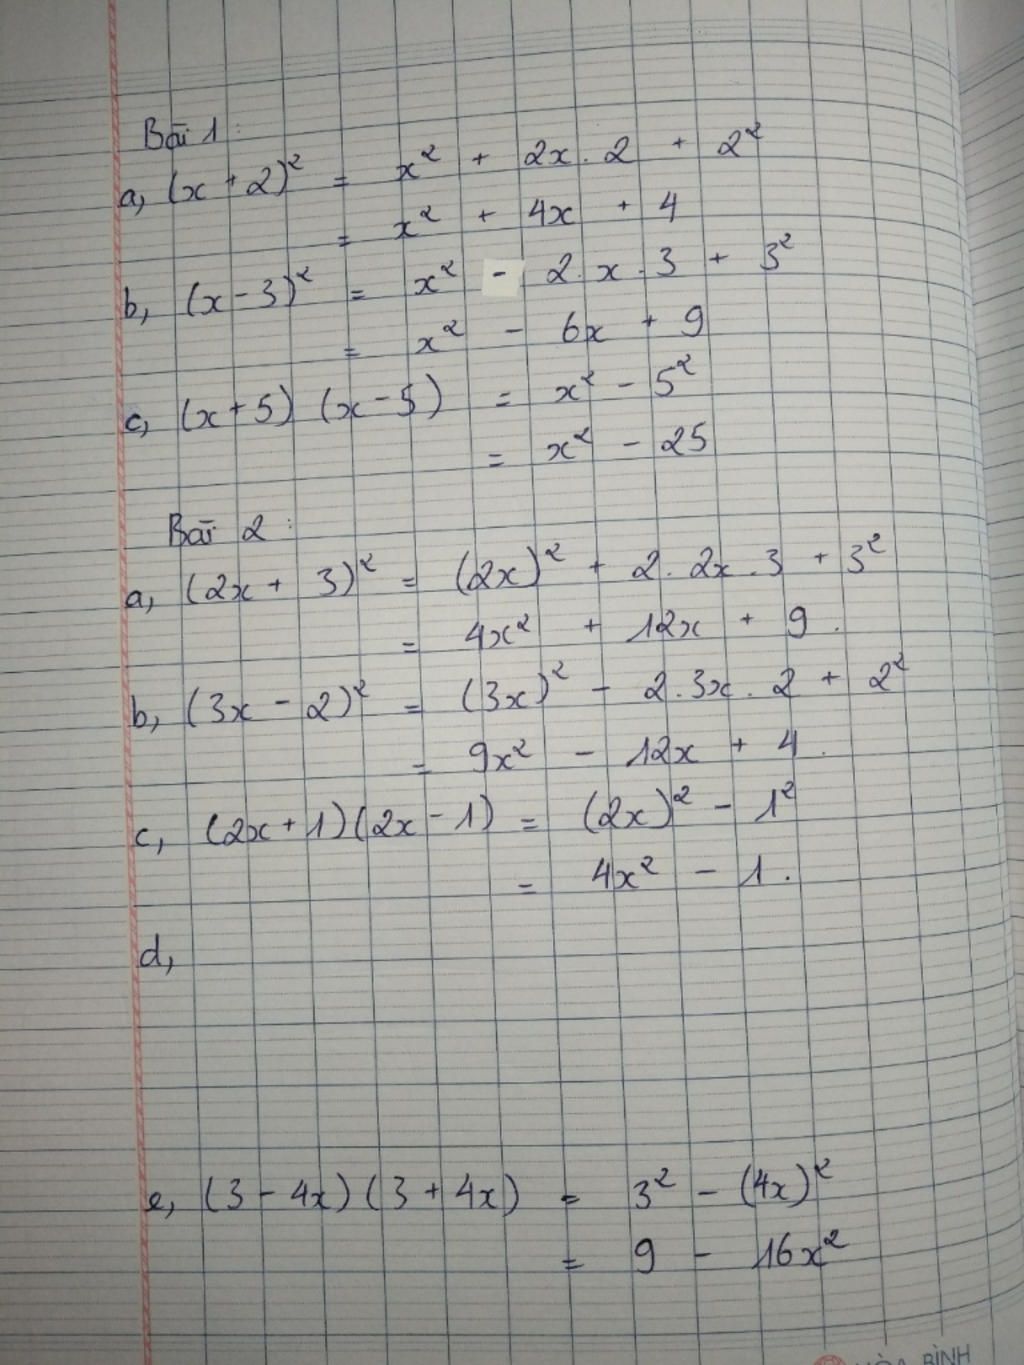 Bài 1:
a, (x + 2)² = x² + 2x . 2 + 2²
= x² + 4x + 4
b, (x - 3)² = x² - 2 . x . 3 + 3²
= x² - 6x + 9
c, (x + 5) (x - 5) = x² - 5²
= x² - 25
Bài 2 :
a, (2x + 3)² = (2x)² + 2 . 2x . 3 + 3²
= 4x² + 12x + 9 .
b, (3x - 2)² = (3x)² - 2 . 3x . 2 + 2²
= 9x² - 12x + 4 .
c, (2x + 1) (2x - 1) = (2x)² - 1²
= 4x² - 1 .
d,
e, (3 - 4x) (3 + 4x) = 3² - (4x)²
= 9 - 16x²
HÒA BÌNH